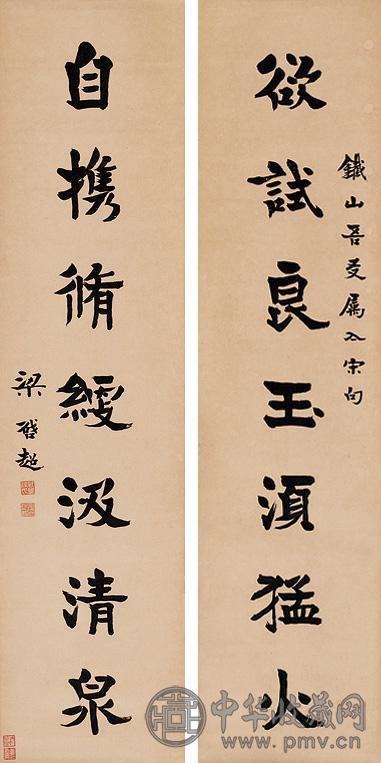 欲試良玉湏猛火
鐵山吾友属亼宋句
自携脩綆汲清泉
梁啓超
中华收藏网
www.pmv.cn